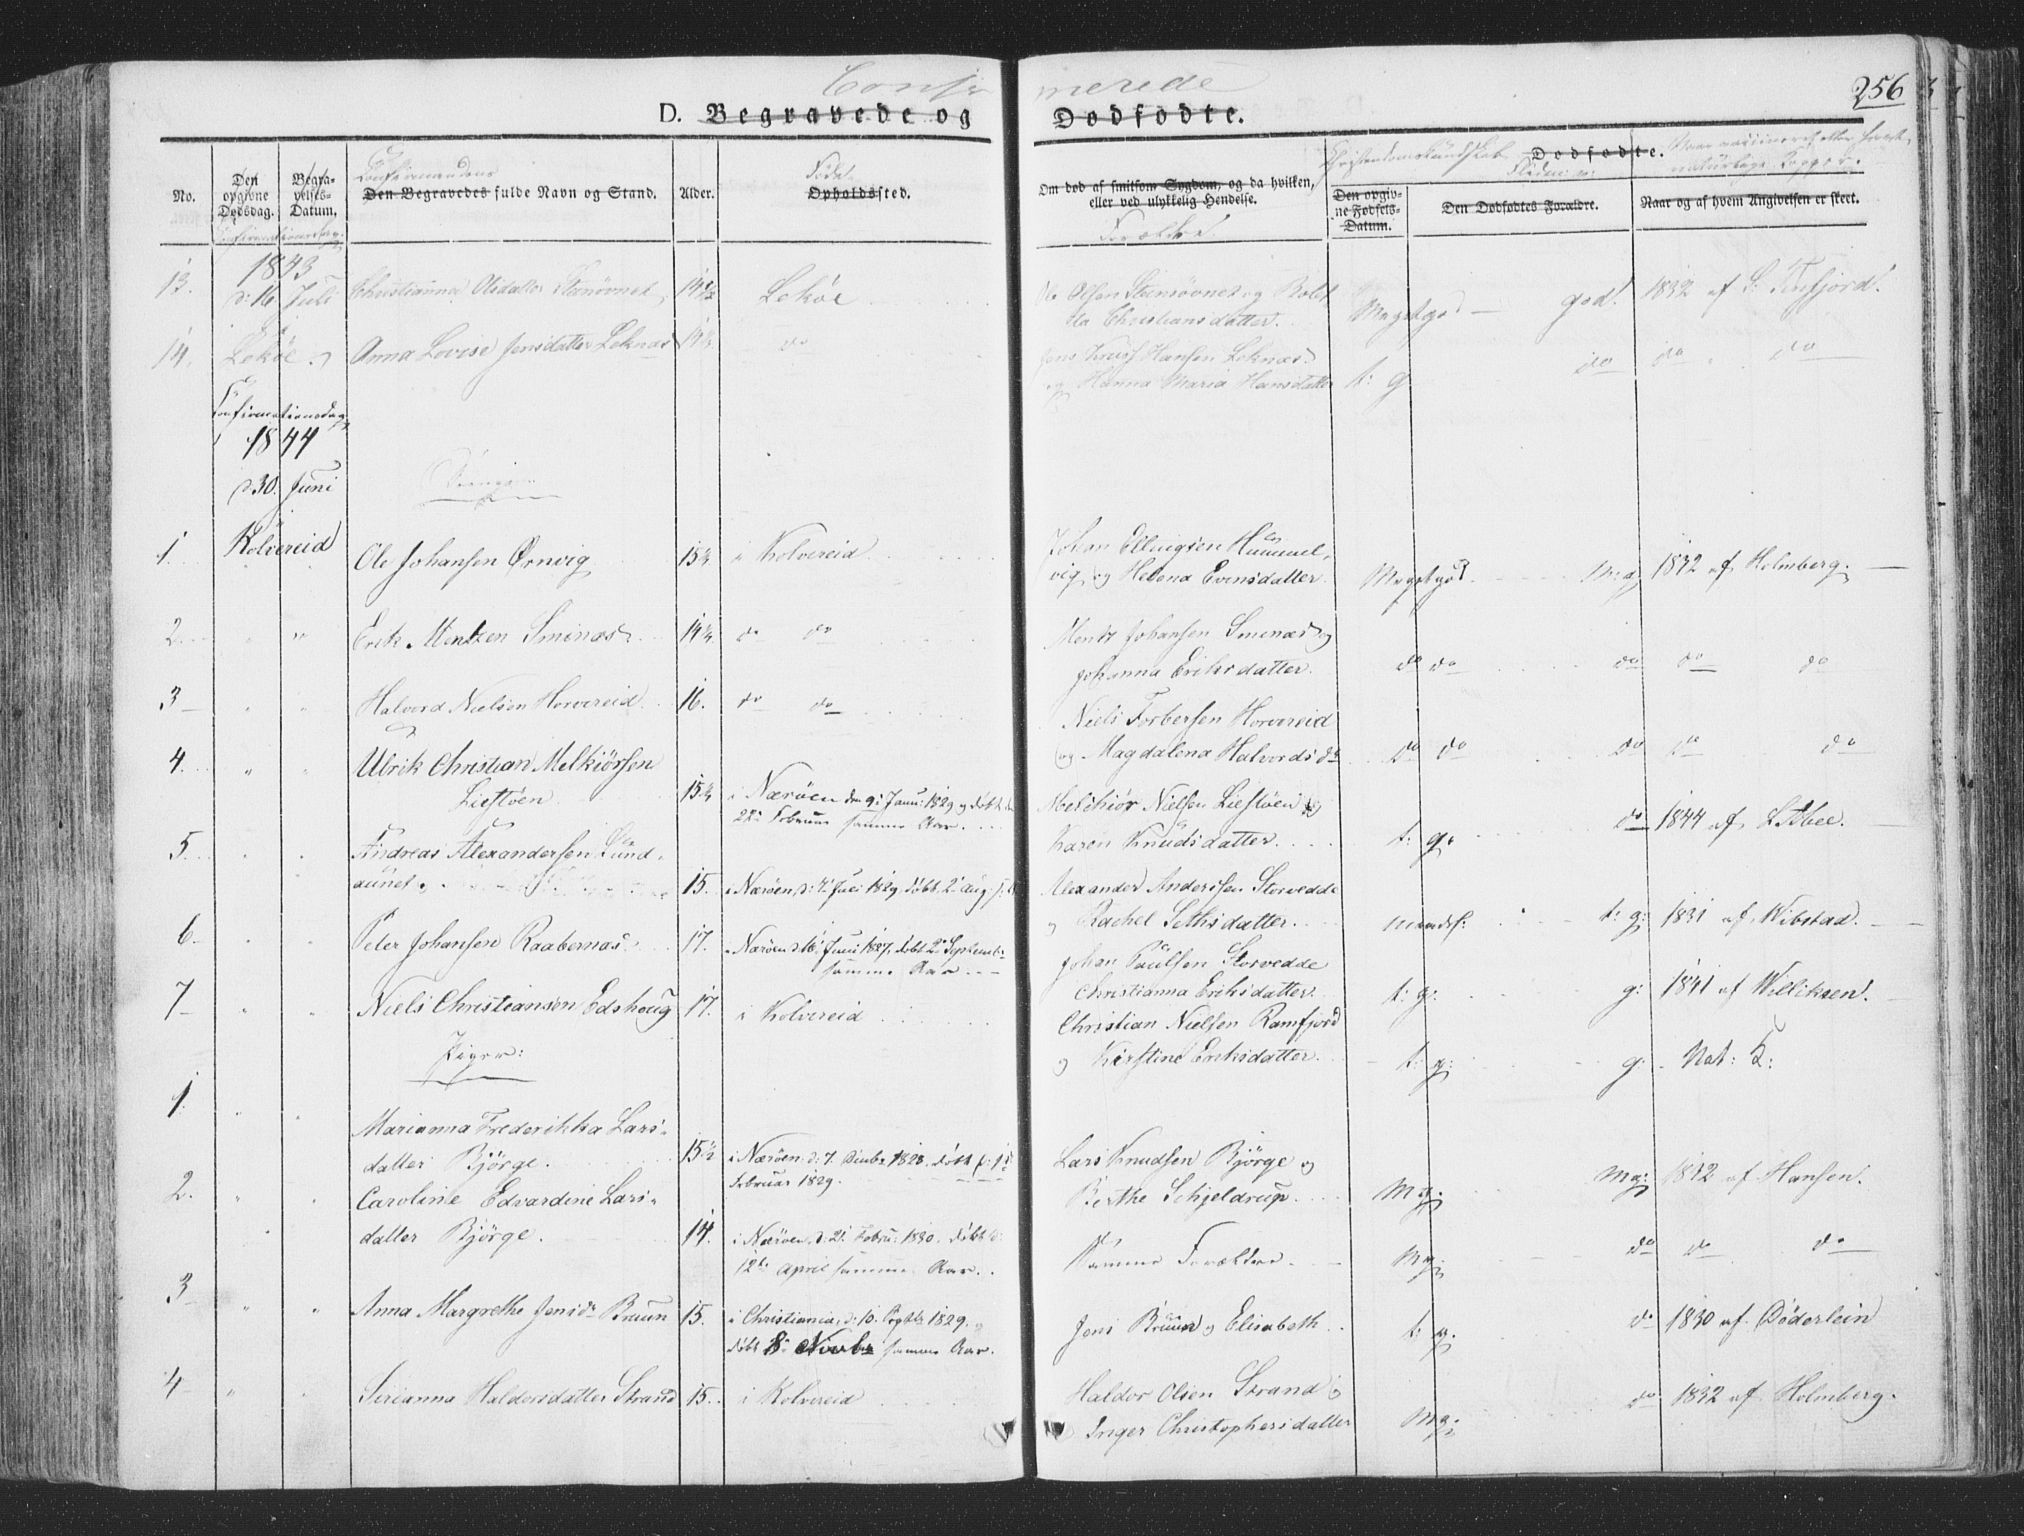 Confirmerede
256
D. Begravede og Dødfødte.
No.
Den opgivne Dødsdag.
Begravelses-Datum.
Confirmationsdag.
Confirmandens
Den Begravedes fulde Navn og Stand.
Alder.
Føde
Opholdssted.
Om død af smitsom Sygdom, og da hvilken,
eller ved ulykkelig Hendelse.
Forældre.
Christendomskundskab
Dødfødte.
Den opgivne Fødsels-Datum.
Den Dødfødtes Forældre.
Naar og af hvem Angivelsen er skeet.
1843
13. d: 16 Juli Christianna Olsdatter 14 1/2 Lekøe
Ole Olsen Steensøvnes og
Christiansdatter. Megetgod god. 1832 af
14. Lekøe Anna Lovise Jensdatter Leknæs 14 1/2 do
Jens Hansen Leknæs
og Hanna Maria Hansdatter t: g do do do
Confirmationsdag
1844
d 30. Juni
1. Kolvereid Ole Johansen Ørnvig 15 1/2 Kolvereid
Johan Ellingsen Hummel,
vig og Helena Evensdatter. Megetgod m: g 1832 af Holmberg.
2. Erik Mentzen Sminæs 14 1/2 do do
Mentz Johansen Sminæs og
Johanna Eriksdatter. do do do do do
3 Halvord Nielsen Horvereid 16. do do
Niels Torbersen Horvereid
og Magdalena Halvordsdr do do do do do
4. Ulrik Christian Melkiørsen
Liestøen 15 1/2 i Nærøen den 9: Janu: 1829 og døbt
22: Februar samme Aar.
Melchiør Nielsen Liestøen og
Karen Knudsdatter. t: g. do 1844 af
5. Andreas Alexandersen Lund,
aunet 15. i Nærøen, d: 7: Juli 1829, døbt 2: Aug:
Alexander Andersen Storvedde
og Rachel Sethsdatter. maadel: t: g: 1831 af Wibstad.
6 Peter Johansen Raabernæs 17. Nærøen d: 16 Juni 1827, døbt 2: Septemb:
samme Aar.
Johan Paulsen Storvedde
Christianna Eriksdatter. t: g: g: 1841 af Williksen.
7 Niels Christiansen Edshoug 17. i Kolvereid
Christian Nielsen Ramfjord
og Kirstine Eriksdatter. t: g: g: Nat: K:
Piger:
1. Marianna Frederikka Lars-
datter Bjørge. 15 1/2 i Nærøen, d: 7. 1828, døbt 1:
Februar 1829.
Lars Knudsen Bjørge og
Birthe Schjeldrup. Mg. Mg: 1832 af Hansen.
2. Caroline Edvardine Lars-
datter Bjørge. 14. i Nærøen, d: 21 Febru: 1830. døbt d:
12te April samme Aar.
Samme Forældre. Mg. do do do
3 Anna Margrethe Jensdr Bruun 15. i Christiania, d: 10. 1829. og
døbt 8: Novbr samme Aar.
Jens Bruun og Elisabeth t: g. do 1830 af Døderlein
4 Sirianna Haldorsdatter Strand 15. i Kolvereid
Haldor Olsen Strand og
Inger Christophersdatter Mg: do 1832 af Holmberg.